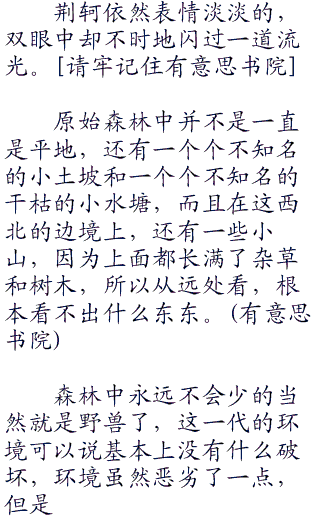 荆轲依然表情淡淡的，
双眼中却不时地闪过一道流
光。[请牢记住有意思书院]
原始森林中并不是一直
是平地，还有一个个不知名
的小土坡和一个个不知名的
干枯的小水塘，而且在这西
北的边境上，还有一些小
山，因为上面都长满了杂草
和树木，所以从远处看，根
本看不出什么东东。(有意思
书院)
森林中永远不会少的当
然就是野兽了，这一代的环
境可以说基本上没有什么破
坏，环境虽然恶劣了一点，
但是